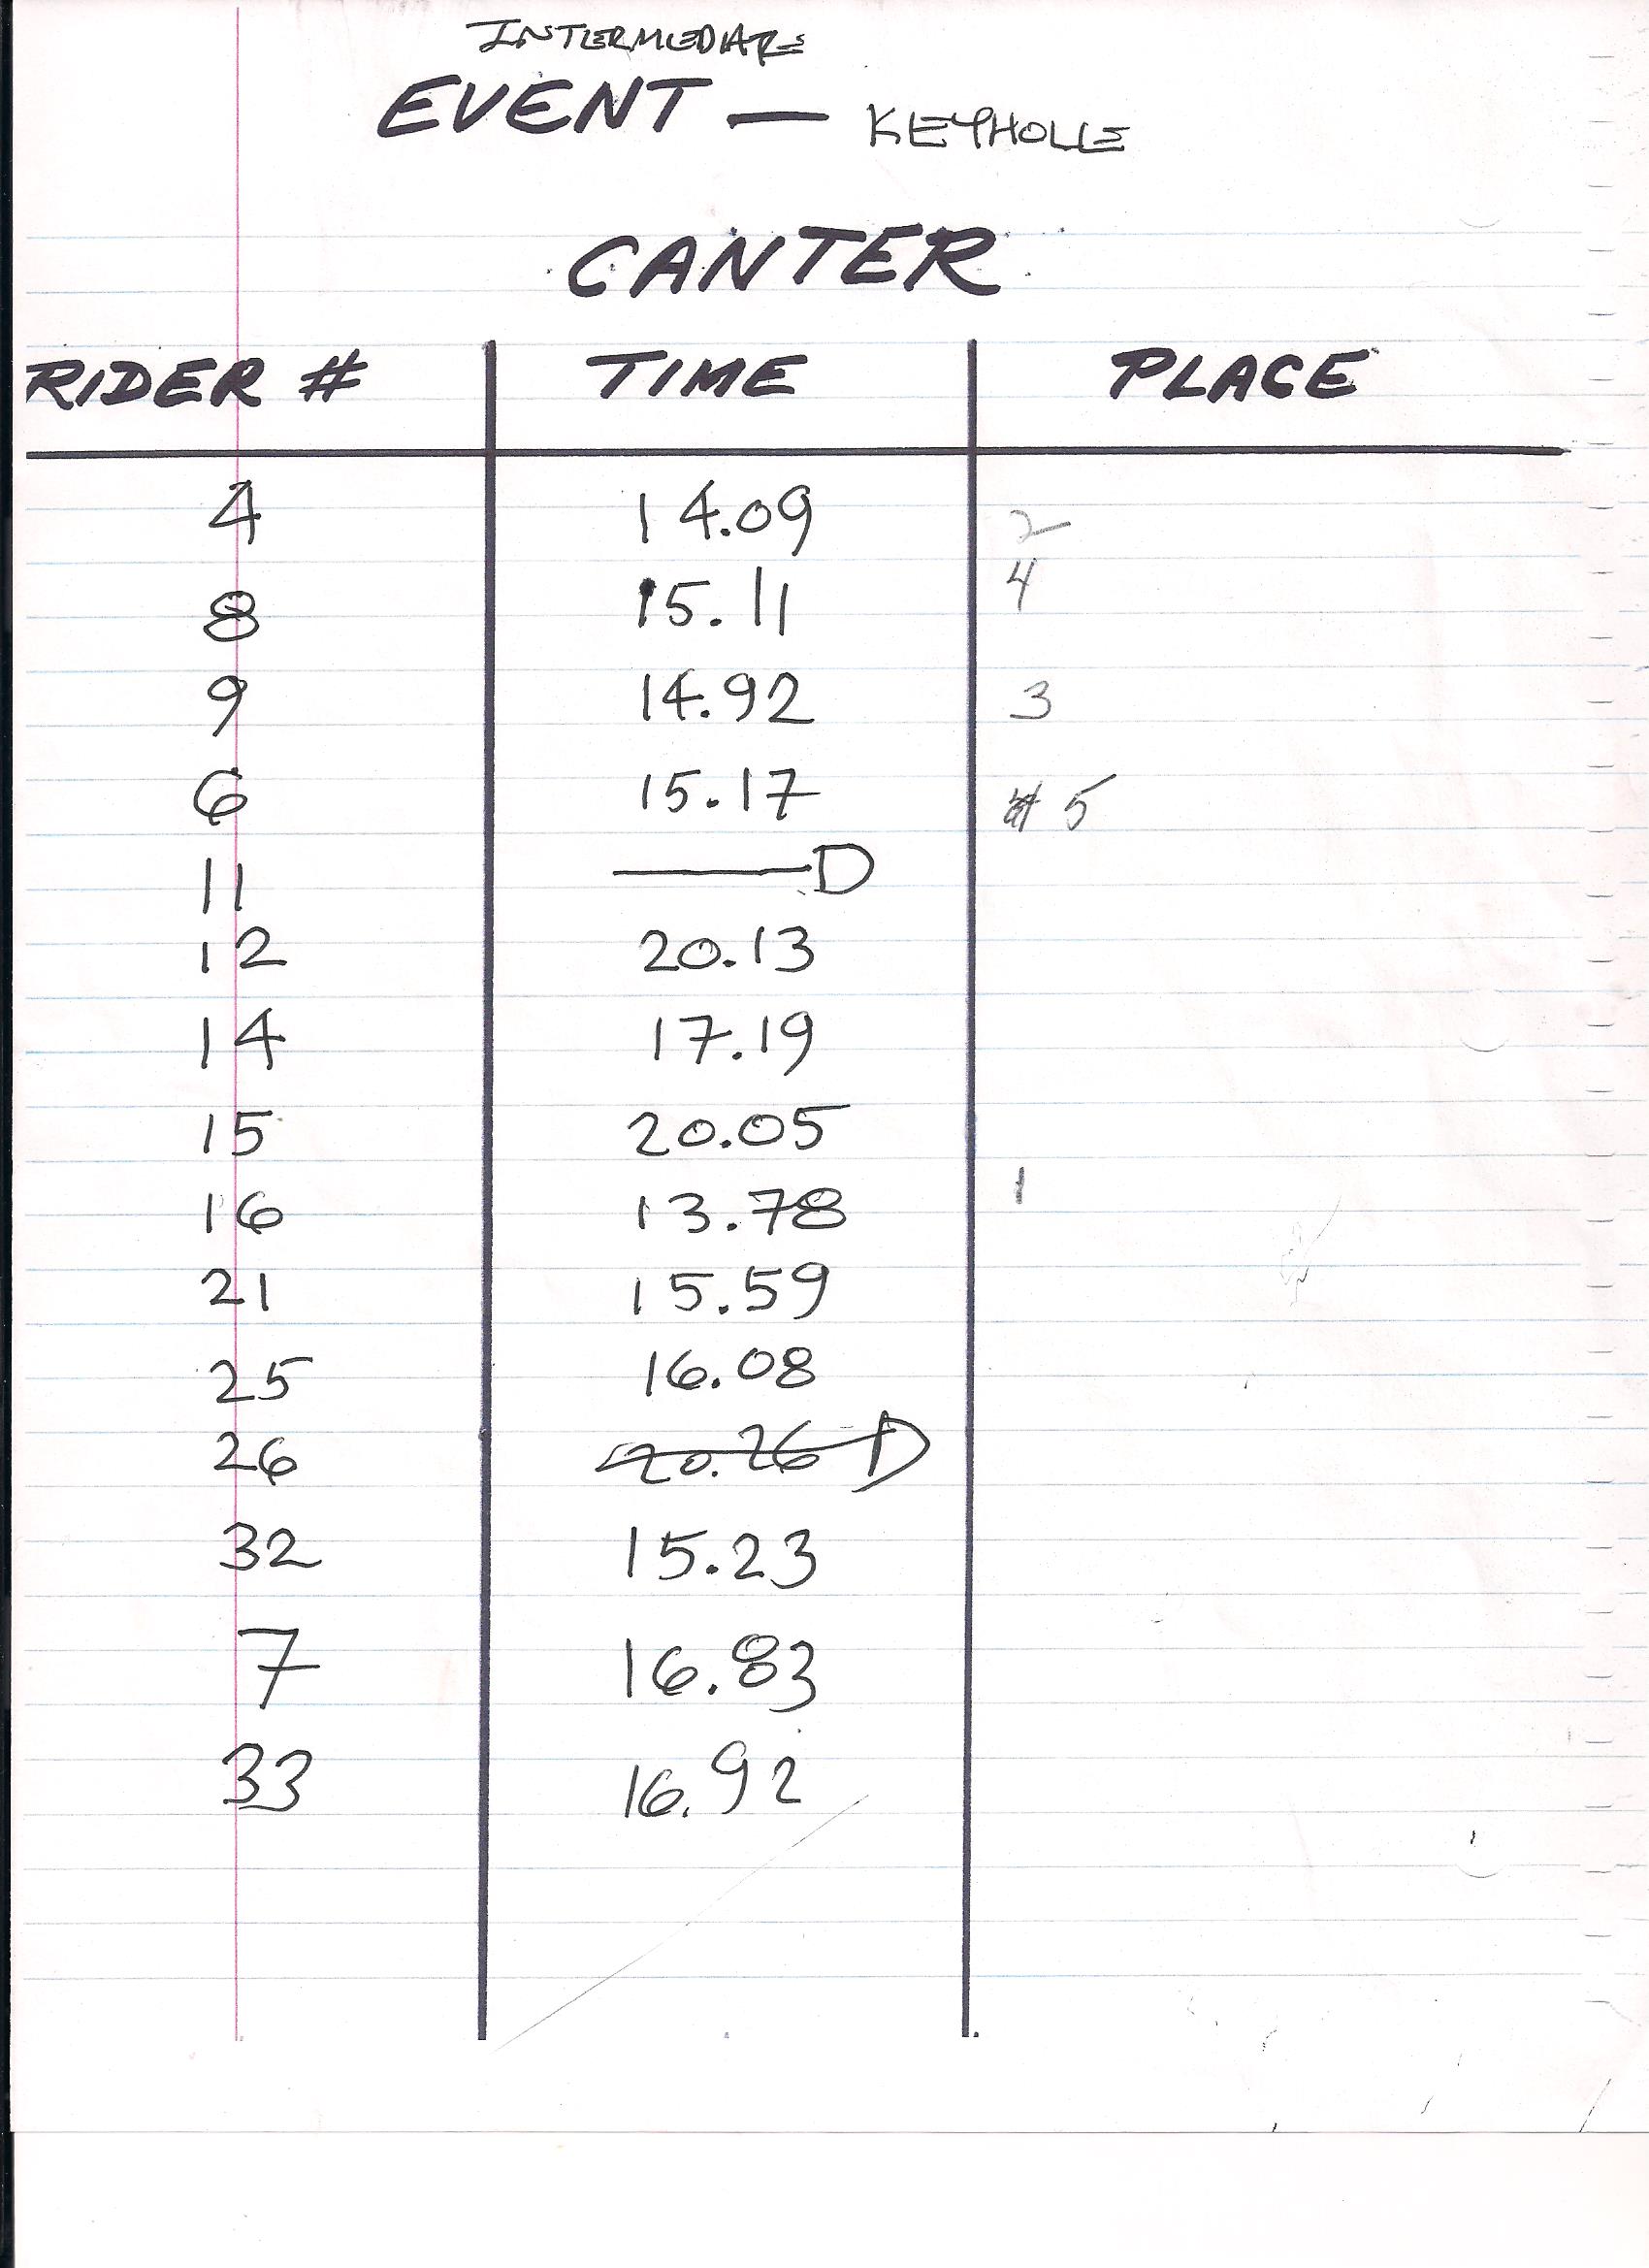 INTERMEDIATE
EVENT — KEYHOLE
CANTER
RIDER # TIME PLACE
4 14.09 2
8 15.11 4
9 14.92 3
6 15.17 5
11 ——D
12 20.13
14 17.19
15 20.05
16 13.78 1
21 15.59
25 16.08
26 20.26 D
32 15.23
7 16.83
33 16.92